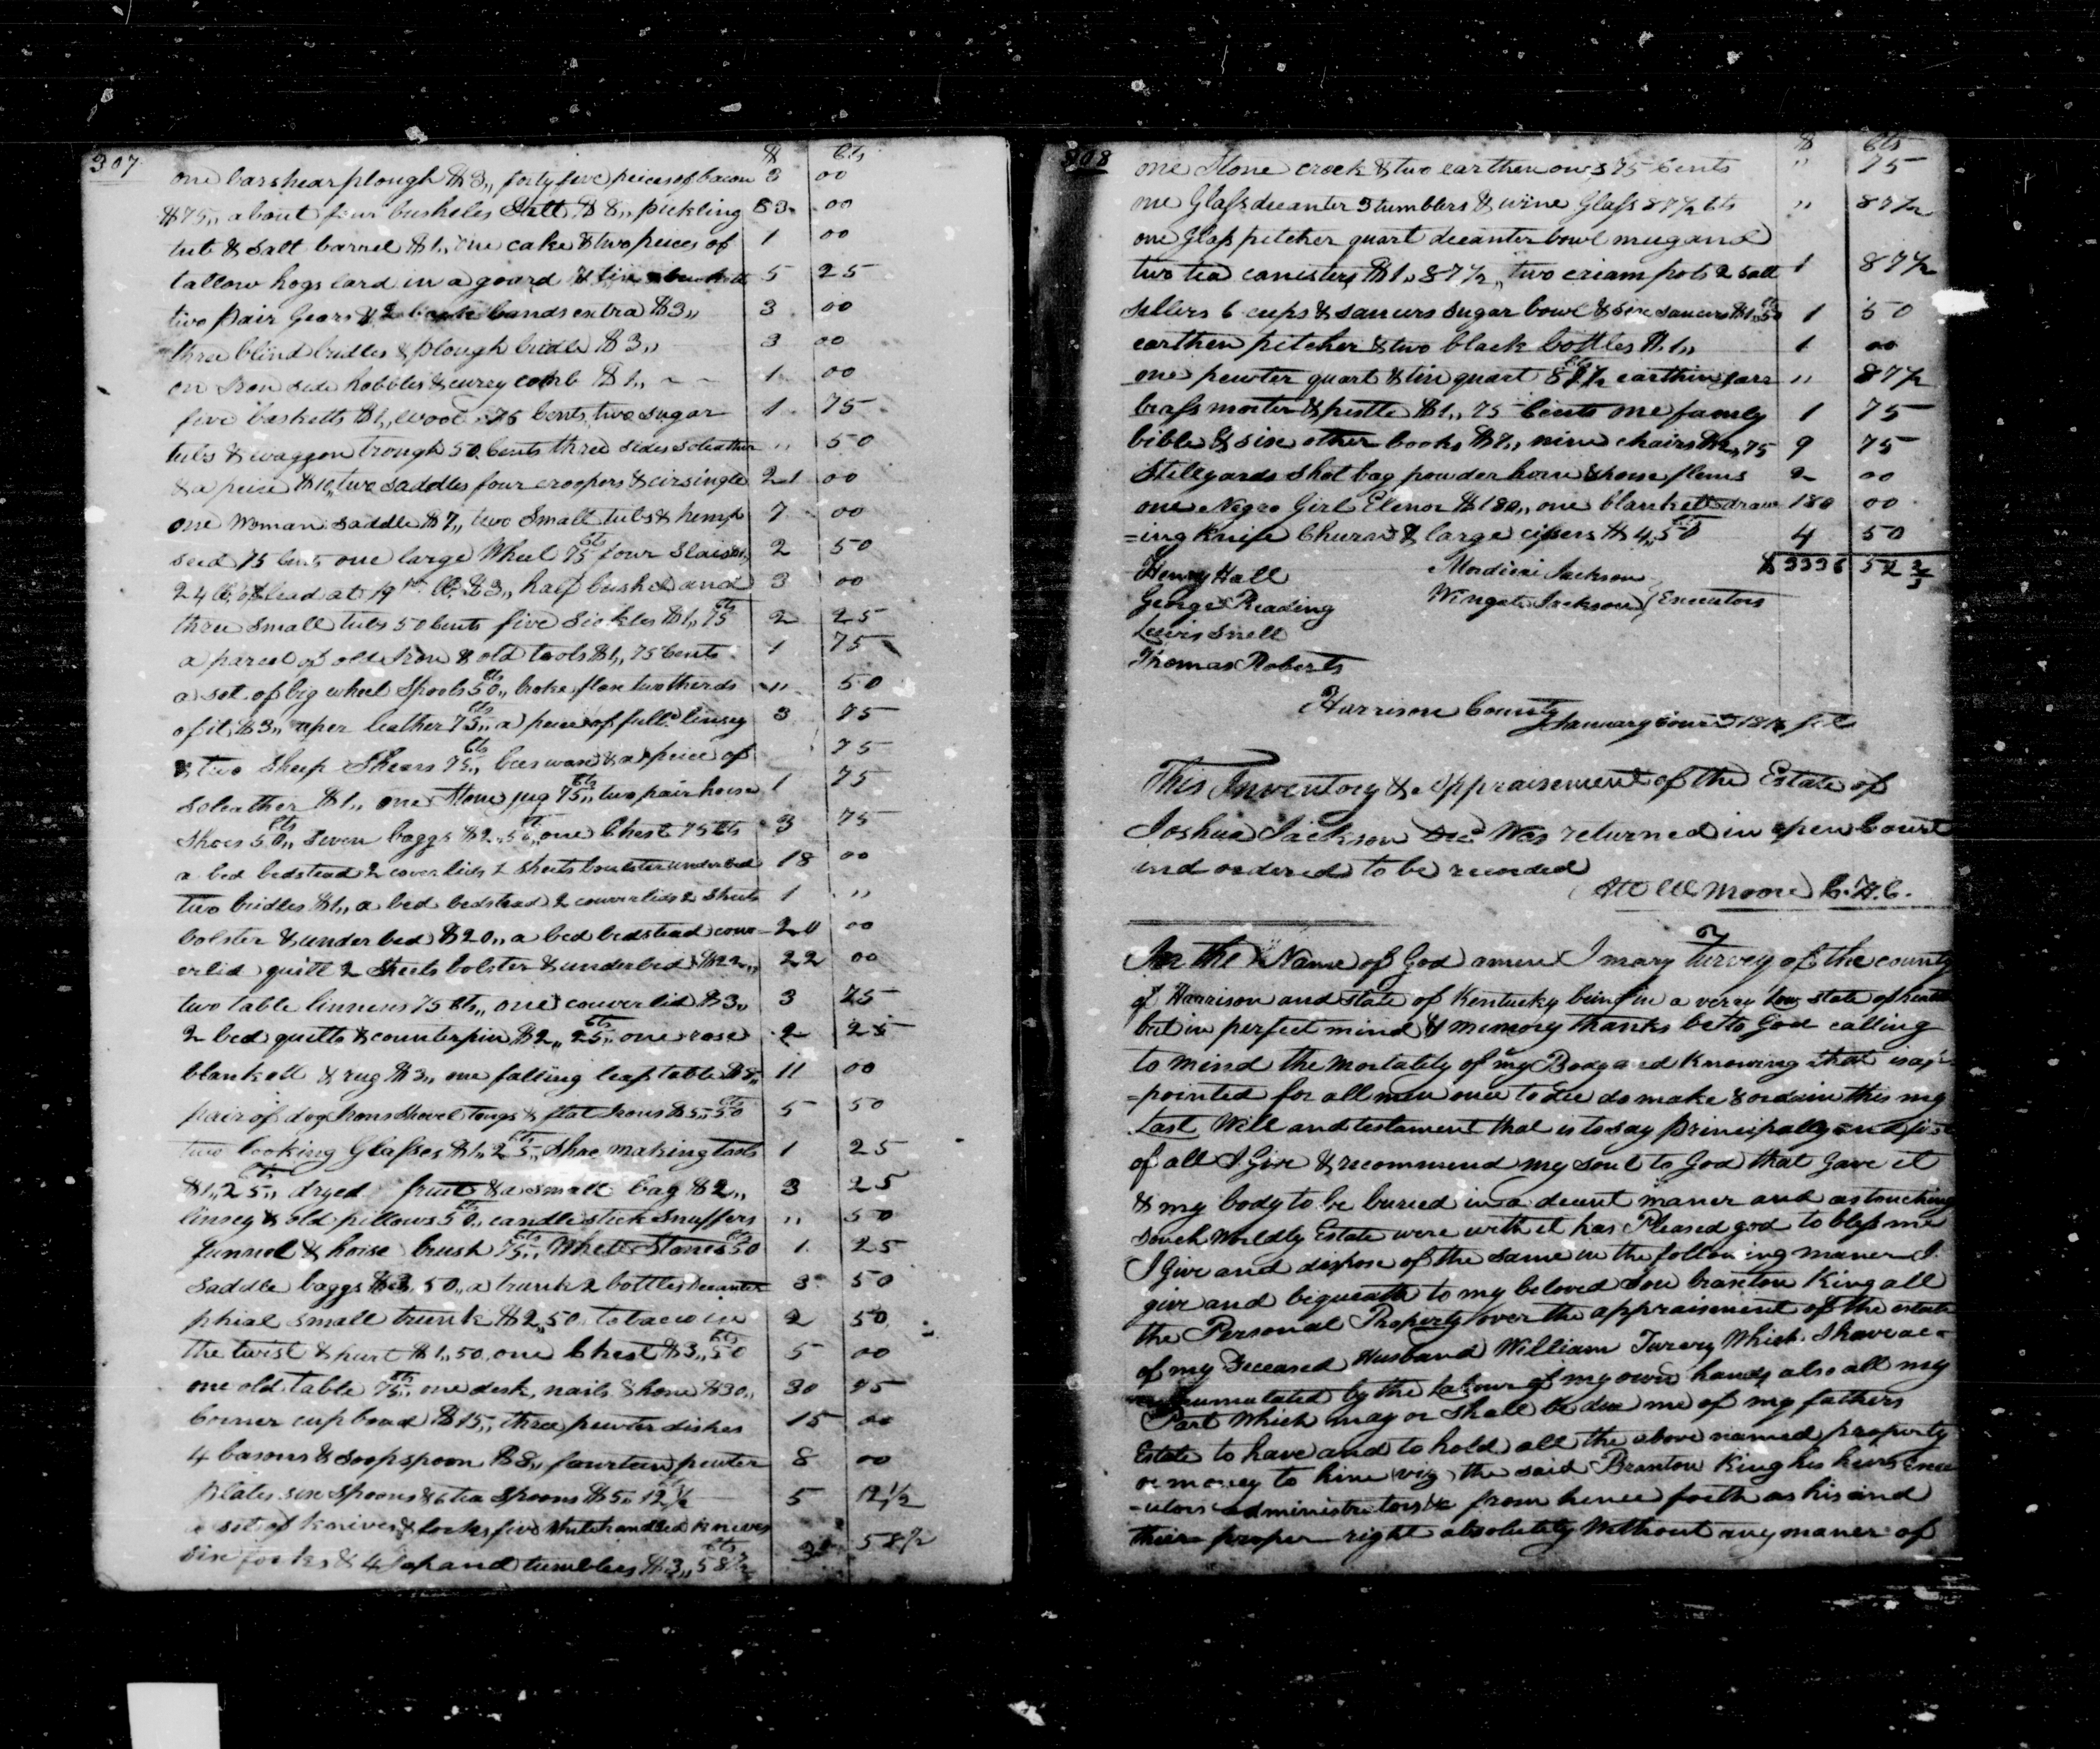 307 $ Cts
one barshear plough $3,, forty five peices of bacon 3 00
$75,, about four busheles Salt $8,, pickling 83 00
tub & salt barrel $1,, one cake & two peices of 1 00
tallow hogs lard in a goard & 5 25
two pair Gears & 2 bands extra $3,, 3 00
three blind bridles & plough bridle $3,, 3 00
on Iron side hobbles & currey comb $1,, 1 00
five basketts $1,, wool 75 Cents, two sugar 1 75
tubs & waggon trough 50 Cents three sides soleather ,, 50
& a peice $10,, two saddles four croopers & cirsingle 21 00
one Woman saddle $7,, two Small tubs & hemp 7 00
seed 75 Cents one large Wheel 75 Cts four Slais 2 50
24 lb of lead at 19 lb $3,, half bushel and 3 00
three small tubs 50 Cents five Sickles $1,, 75 Cts 2 25
a parcel of old Iron & old tools $1,, 75 Cents 1 75
a set of big wheel Spools 50 Cts,, broke flax two therds ,, 50
of it $3,, uper leather 75 Cts,, a peice of full'd linsey 3 75
& two Sheep Shears 75 Cts,, bees wax & a peice of 75
soleather $1,, one Stone jug 75 Cts,, two pair horse 1 75
shoes 50 Cts,, Seven baggs $2,, 50 Ct,, one Chest 75 Cts 3 75
a bed bedstead 2 coverlids 2 Sheets boulster underbed 18 00
two bridles $1,, a bed bedstead 2 couverlids 2 Sheets 1 ,,
bolster & under bed $20,, a bed bedstead couv- 20 00
erlid quilt 2 Sheets bolster & underbed $22,, 22 00
two table linnens 75 Cts,, one couverlid $3,, 3 75
2 bed quilts & counterpin $2,, 25 Cts,, one rose 2 25
blankett & rug $3,, one falling leaf table $8,, 11 00
pair of dog Irons Shovel tongs & flat Irons $5,, 50 Cts 5 50
two looking Glasses $1,, 25 Cts,, Shoe making tools 1 25
$1,, 25 Cts,, dryed fruit & a small bag $2,, 3 25
linsey & old pillows 50 Cts,, candle stick Snuffers ,, 50
funnel & horse brush 75 Cts,, Whett Stones 50 Cts 1 25
Saddle baggs $3,, 50,, a trunk 2 bottles Decanter 3 50
phial small trunk $2,, 50 tobacco in 2 50
the twist & hurt $1,, 50, one Chest $3,, 50 Cts 5 00
one old table 75 Cts,, one desk, nails & hone $30,, 30 75
Corner cupboad $15,, three pewter dishes 15 00
4 basons & soopspoon $8,, fourteen pewter 8 00
plates six spoons & 6 tea spoons $5,, 12 1/2 5 12 1/2
a set of knives & forks five Whitehandled knives
six forks & 4 Japand tumblers $3,, 58 1/2 Cts 3 58 1/2
308 $ Cts
one Stone crock & two earthen ones 75 Cents ,, 75
one Glass decanter 3 tumblers & wine Glass 87 1/2 Cts ,, 87 1/2
one Glass pitcher quart decanter bowl mug and
two tea canisters $1,, 87 1/2,, two cream pots 2 salt 1 87 1/2
sellers 6 cups & saucurs sugar bowl & six saucurs $1,, 50 Cts 1 50
earthen pitcher & two black bottles $1,, 1 00
one pewter quart & tin quart 87 1/2 Cts earthin jarr ,, 87 1/2
brass morter & pestle $1,, 75 Cents one family 1 75
bible & six other books $7,, nine chairs $2,, 75 9 75
Stillyards Shot bag powder horn & horse flems 2 00
one Negro Girl Elenor $180,, one blankett draw 180 00
=ing Knife Churn & large cipers $4,, 50 Cts 4 50
Henry Hall Mordicai Jackson $3336 52 2/3
George Reading Wingate Jackson } Executors
Lewis Snell
Thomas Roberts
Harrison County
January Court 181
This Inventory & Appraisement of the Estate of
Joshua Jackson Dec'd Was returned in open Court
and ordered to be recorded
Att W Moore C.H.C.
In the Name of God amen I mary Turvey of the county
of Harrison and state of Kentucky being in a verry low state of health
but in perfect mind & memory thanks be to God calling
to mind the mortality of my Body and Knowing that is ap=
=pointed for all men once to die do make & ordain this my
Last Will and testament that is to say principally and first
of all I Give & recommend my soul to God that Gave it
& my body to be buried in a decent maner and as touching
souch Worldly Estate were with it has Pleased god to bless me
I Give and dispose of the same in the following maner I
give and bequeath to my beloved Son Braxton King all
the Personal Property over the appraisment of the estate
of my Deceased Husband William Turvey Which I have ac=
=cumulated by the Labour of my own hands also all my
Part Which may or shall be due me of my fathers
Estate to have and to hold all the above named property
or money to him (viz) the said Braxton King his heirs Exec
=utors administrators &c from hence forth as his and
their proper right absolutely Without any maner of